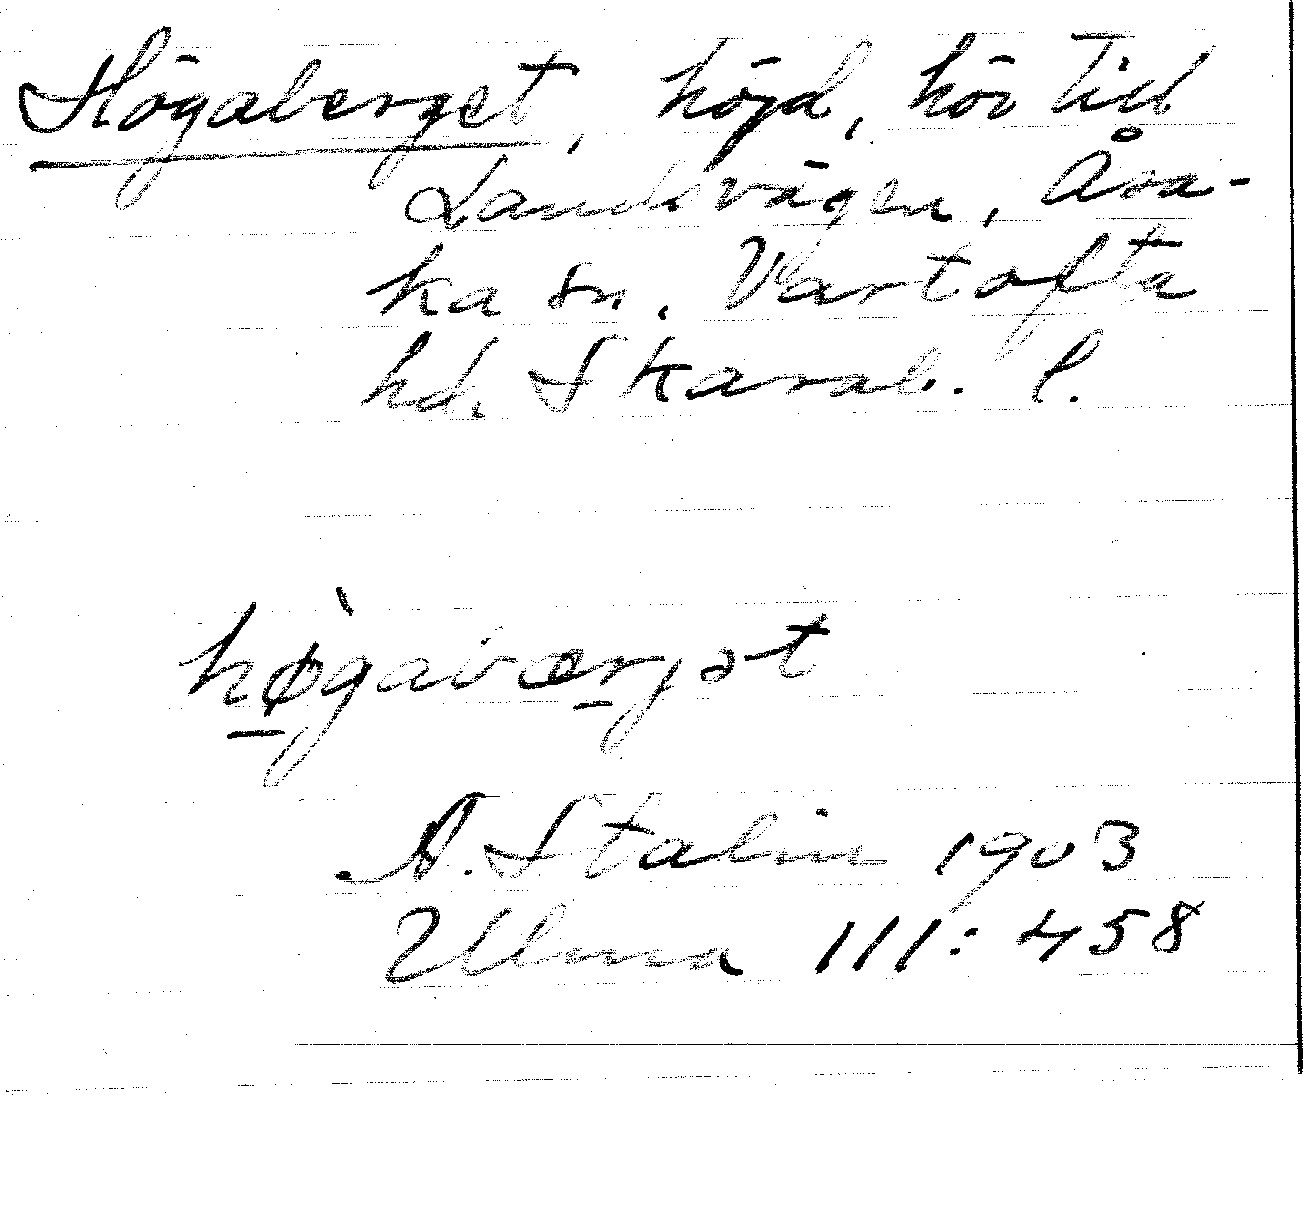 Högaberget, höjd, hör till
Landsvägen, Åsa-
ka sn. Vartofta
hd. Skarab. l.
hø̀gabærjət
A. Stalin 1903
Ulma 111: 458